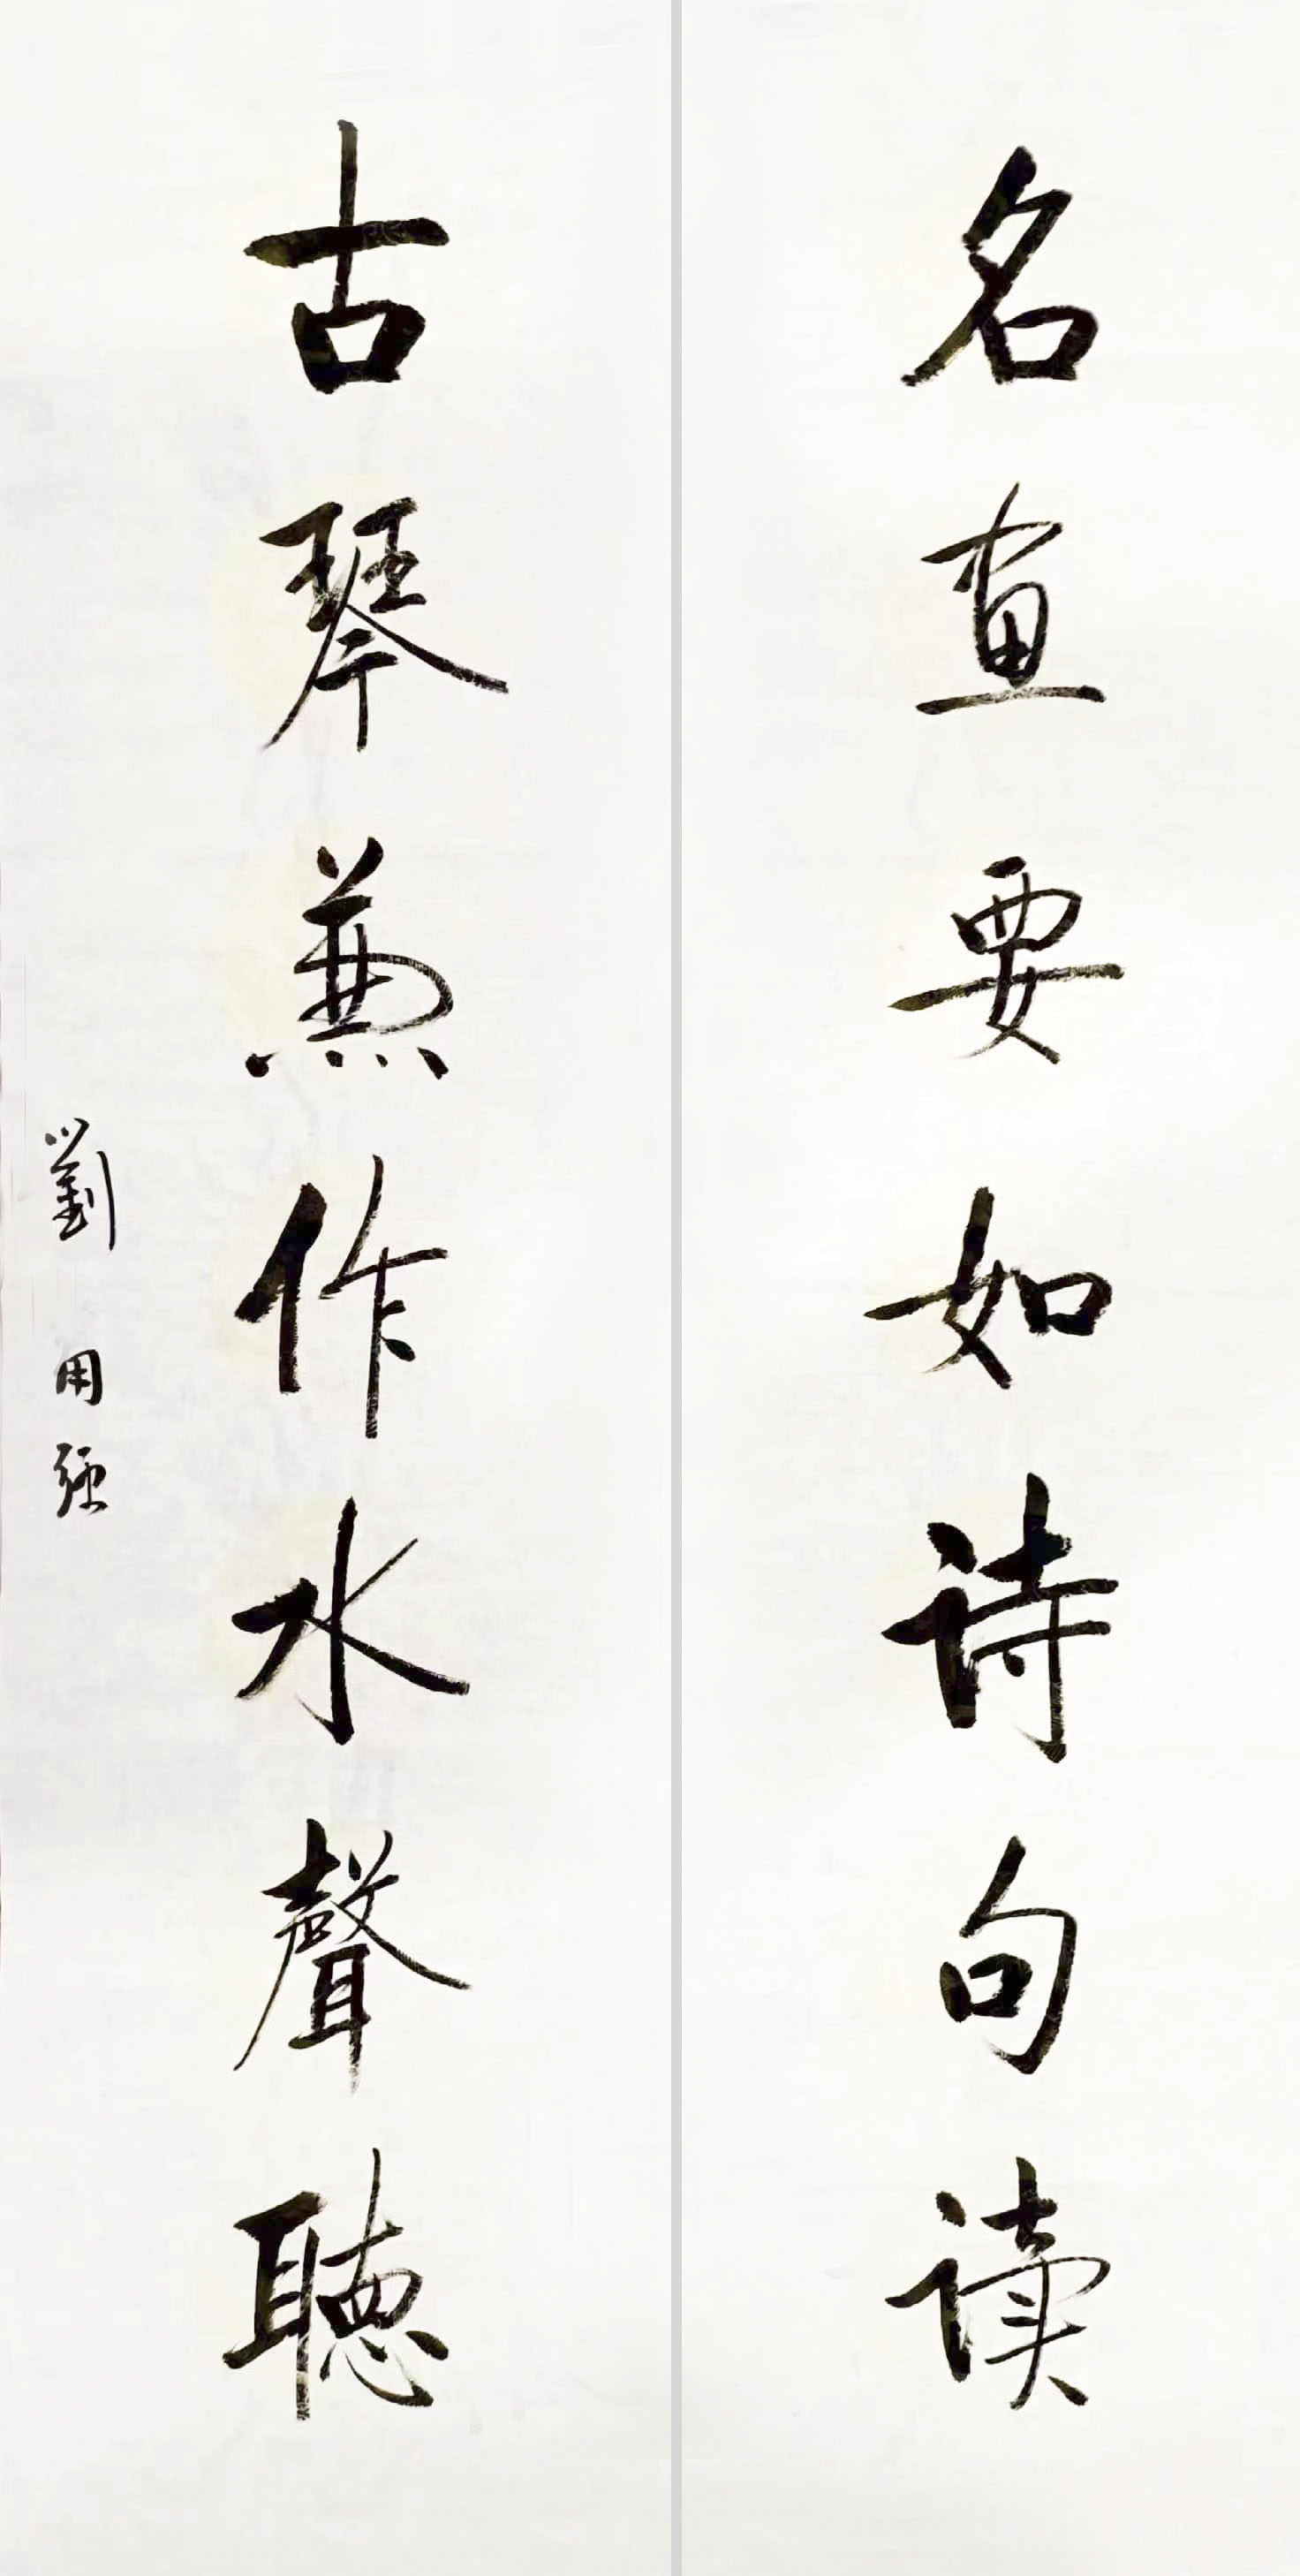 名画要如诗句读
古琴兼作水聲聽
劉用强